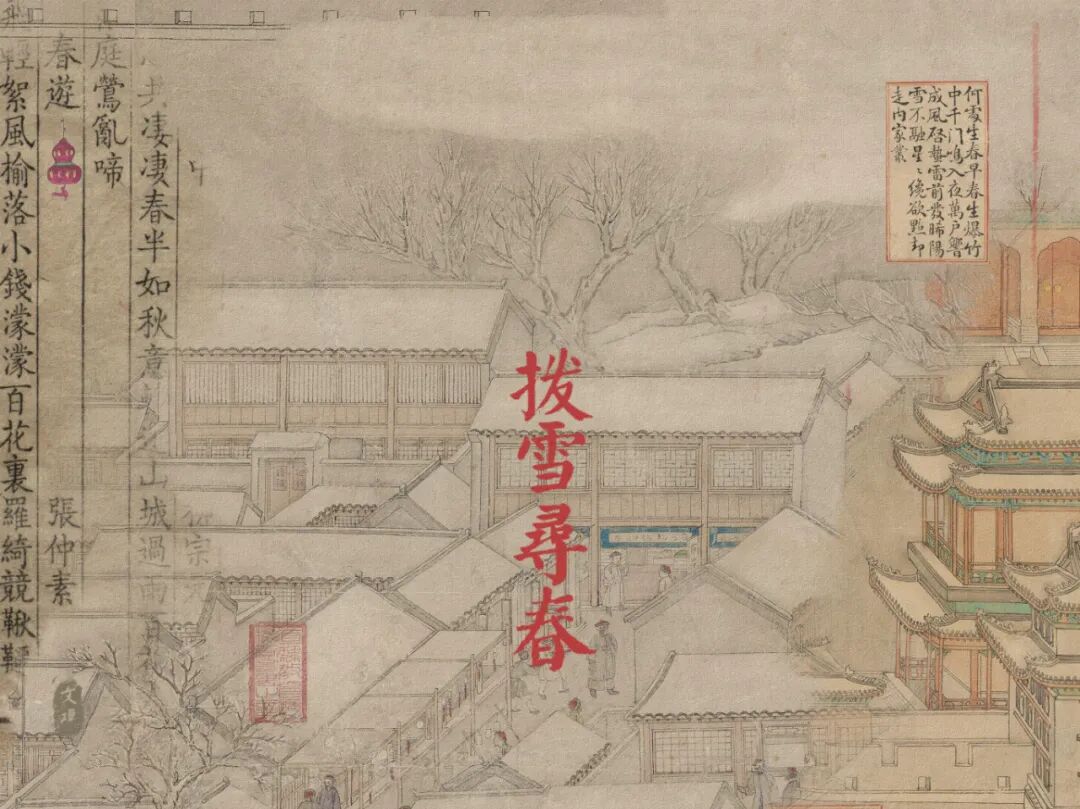 何處生春早春生爆竹
中千门鳴入夜萬戶響
成風啓蟄雷前發晞陽
雪不融星〻纔欲點却
走内家叢
拨雪尋春
宗
共凄凄春半如秋意山城過雨百
庭鶯亂啼
春遊 張仲素
輕絮風榆落小錢濛濛百花裏羅綺競鞦韆